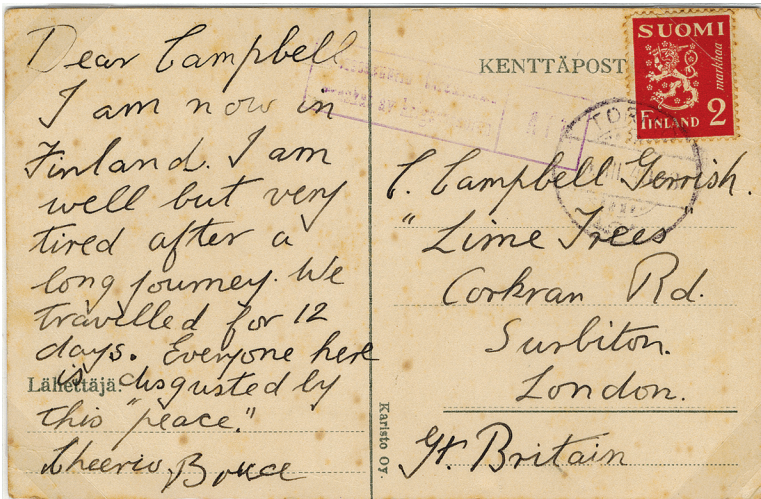 Dear Campbell
I am now in
Finland. I am
well but very
tired after a
long journey. We
travelled for 12
days. Everyone here
is disgusted by
this "peace."
Cheerio, Bruce
Lähettäjä:
Karisto Oy.
KENTTÄPOST
SUOMI
markkaa
FINLAND 2
TOR
C. Campbell Gerrish.
"Lime Trees"
Corkran Rd.
Surbiton.
London.
Gt. Britain